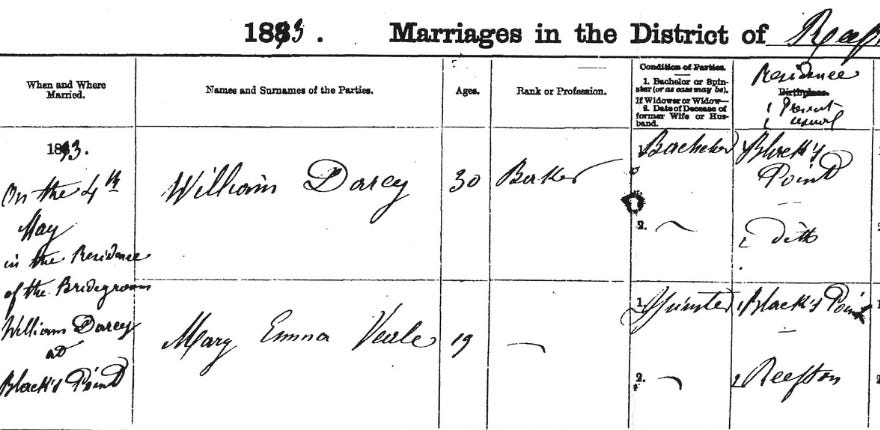 1893. Marriages in the District of Reef
When and Where Married.
Names and Surnames of the Parties.
Ages.
Rank or Profession.
Condition of Parties.
1. Bachelor or Spin-
ster (or as case may be).
If Widower or Widow—
2. Date of Decease of
former Wife or Hus-
band.
Residence
Birthplace.
1 Present
2 usual
1893.
On the 4th
May
in the Residence
of the Bridegroom
William Darcy
at
Black's Point
William Darcy
30
Baker
1. Bachelor
2.
Black's
Point
2 ditto
Mary Emma Veale
19
1. Spinster
2.
1 Black's Point
2 Reefton